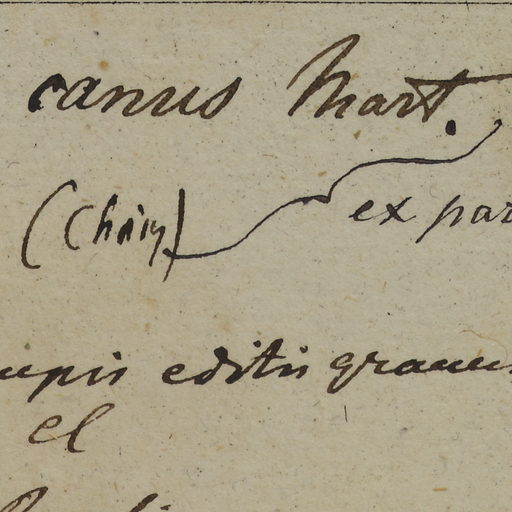 canus Mart.
(Chaix) ex par
upis editis
el